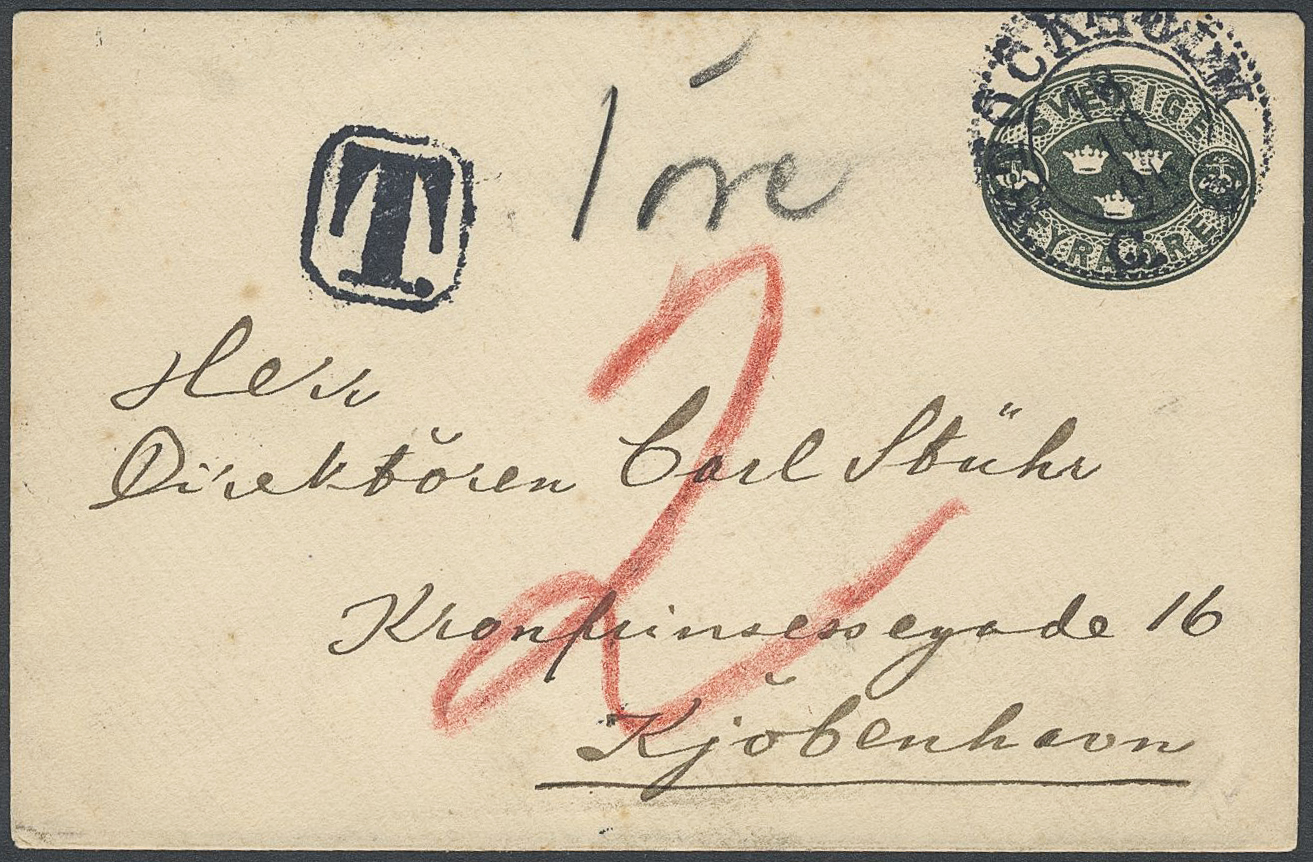 STOCKHOLM
C.
SVERIGE
FYRA ÖRE
T.
1 öre
2
Herr
Direktören Carl Stühr
Kronprinsessegade 16
Kjöbenhavn